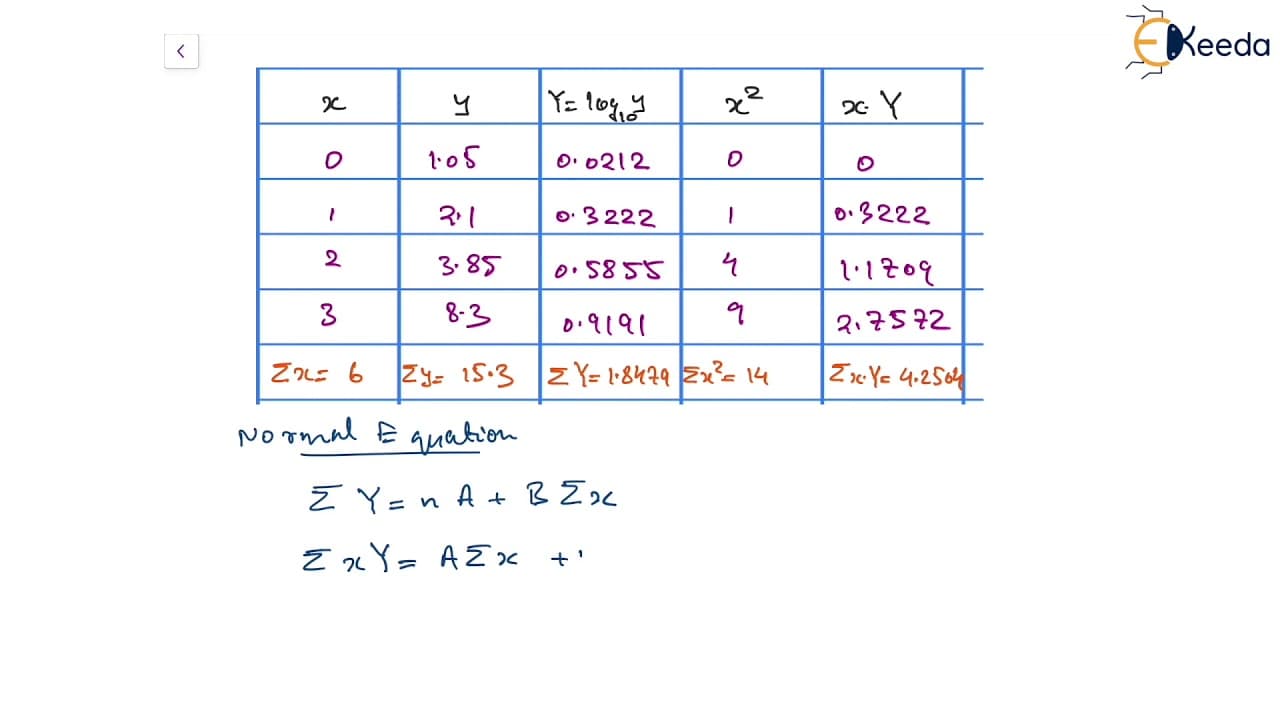 EKeeda
<
x y Y= log₁₀y x² x·Y
0 1.05 0.0212 0 0
1 2.1 0.3222 1 0.3222
2 3.85 0.5855 4 1.1709
3 8.3 0.9191 9 2.7572
Σx= 6 Σy= 15.3 ΣY= 1.8479 Σx²= 14 Σx·Y= 4.2504
Normal Equation
ΣY= nA + BΣx
ΣxY= AΣx +